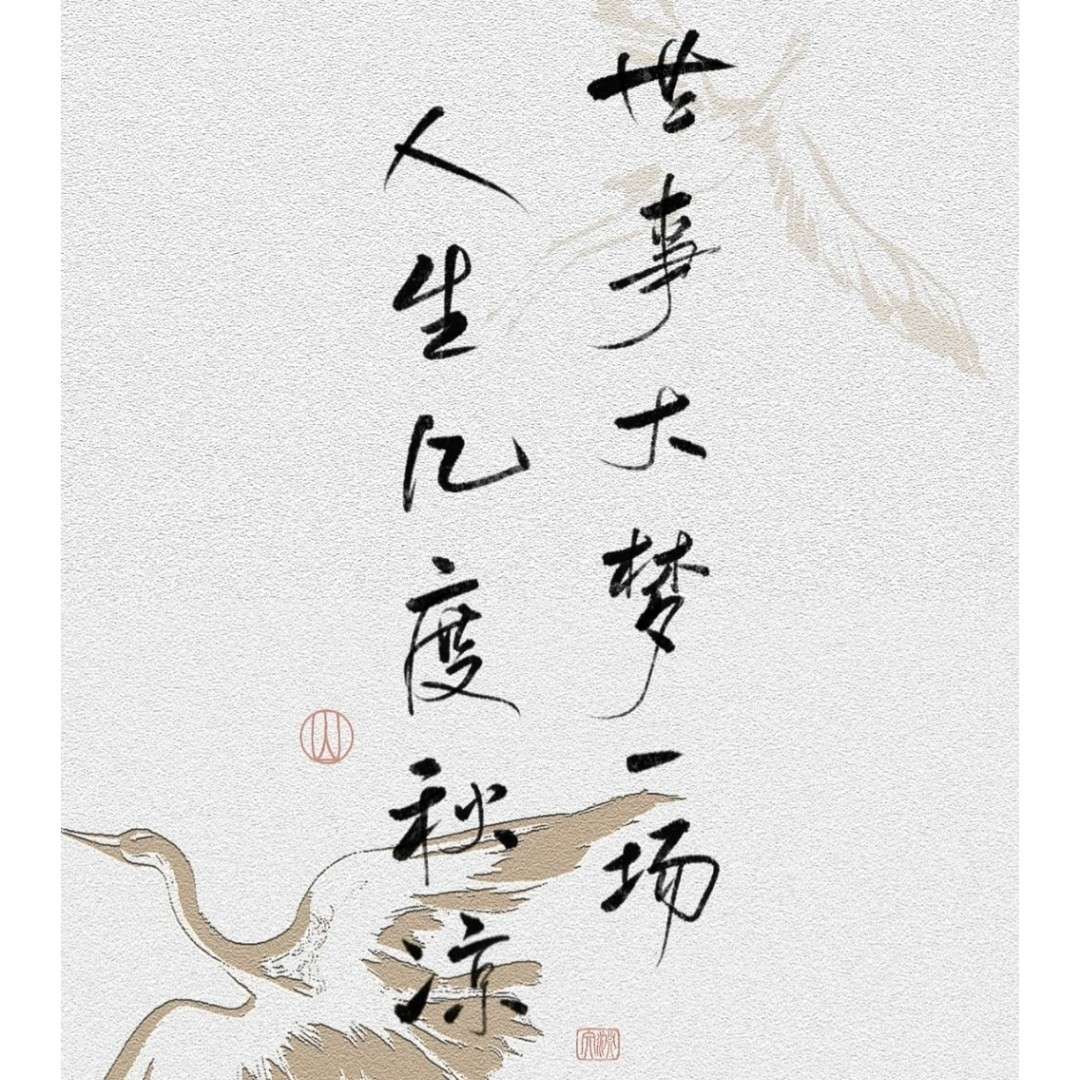 世事大梦一场
人生几度秋凉